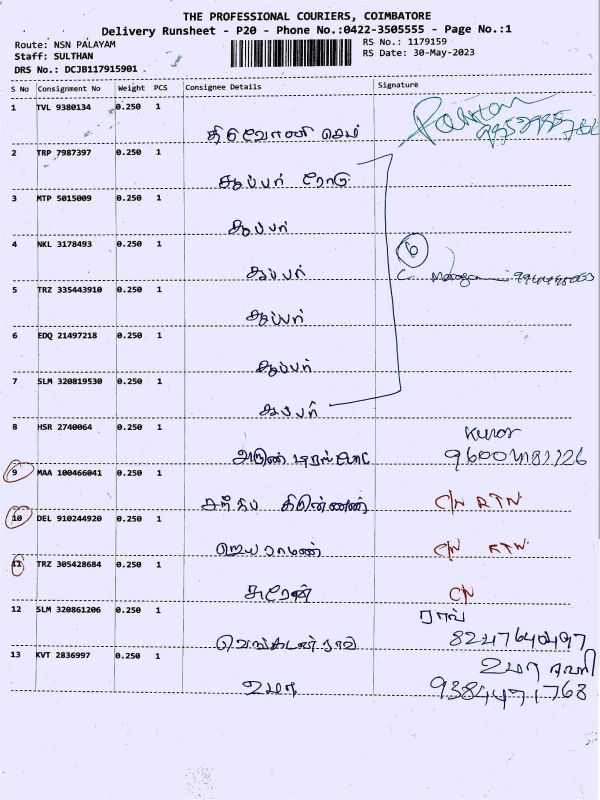 THE PROFESSIONAL COURIERS, COIMBATORE
Delivery Runsheet - P20 - Phone No.:0422-3505555 - Page No.:1
Route: NSN PALAYAM RS No.: 1179159
Staff: SULTHAN RS Date: 30-May-2023
DRS No.: DCJB117915901
S No Consignment No Weight PCS Consignee Details Signature
1 TVL 9380134 0.250 1
2 TRP 7987397 0.250 1
சூப்பர் ரோடு
3 MTP 5015009 0.250 1
சூப்பர்
4 NKL 3178493 0.250 1
6
சூப்பர்
5 TRZ 335443910 0.250 1
சூப்பர்
6 EDQ 21497218 0.250 1
சூப்பர்
7 SLM 320819530 0.250 1
சூப்பர்
8 HSR 2740064 0.250 1
Kumar
அருண்
9 MAA 100466041 0.250 1
C/N RTN
10 DEL 910244920 0.250 1
ஜெயராமன் C/N RTN
11 TRZ 305428684 0.250 1
சுரேஷ் C/N
12 SLM 320861206 0.250 1
ராவ்
வெங்கடன் ராவ் 8247640497
13 KVT 2836997 0.250 1
உமா
உமா 9384471768